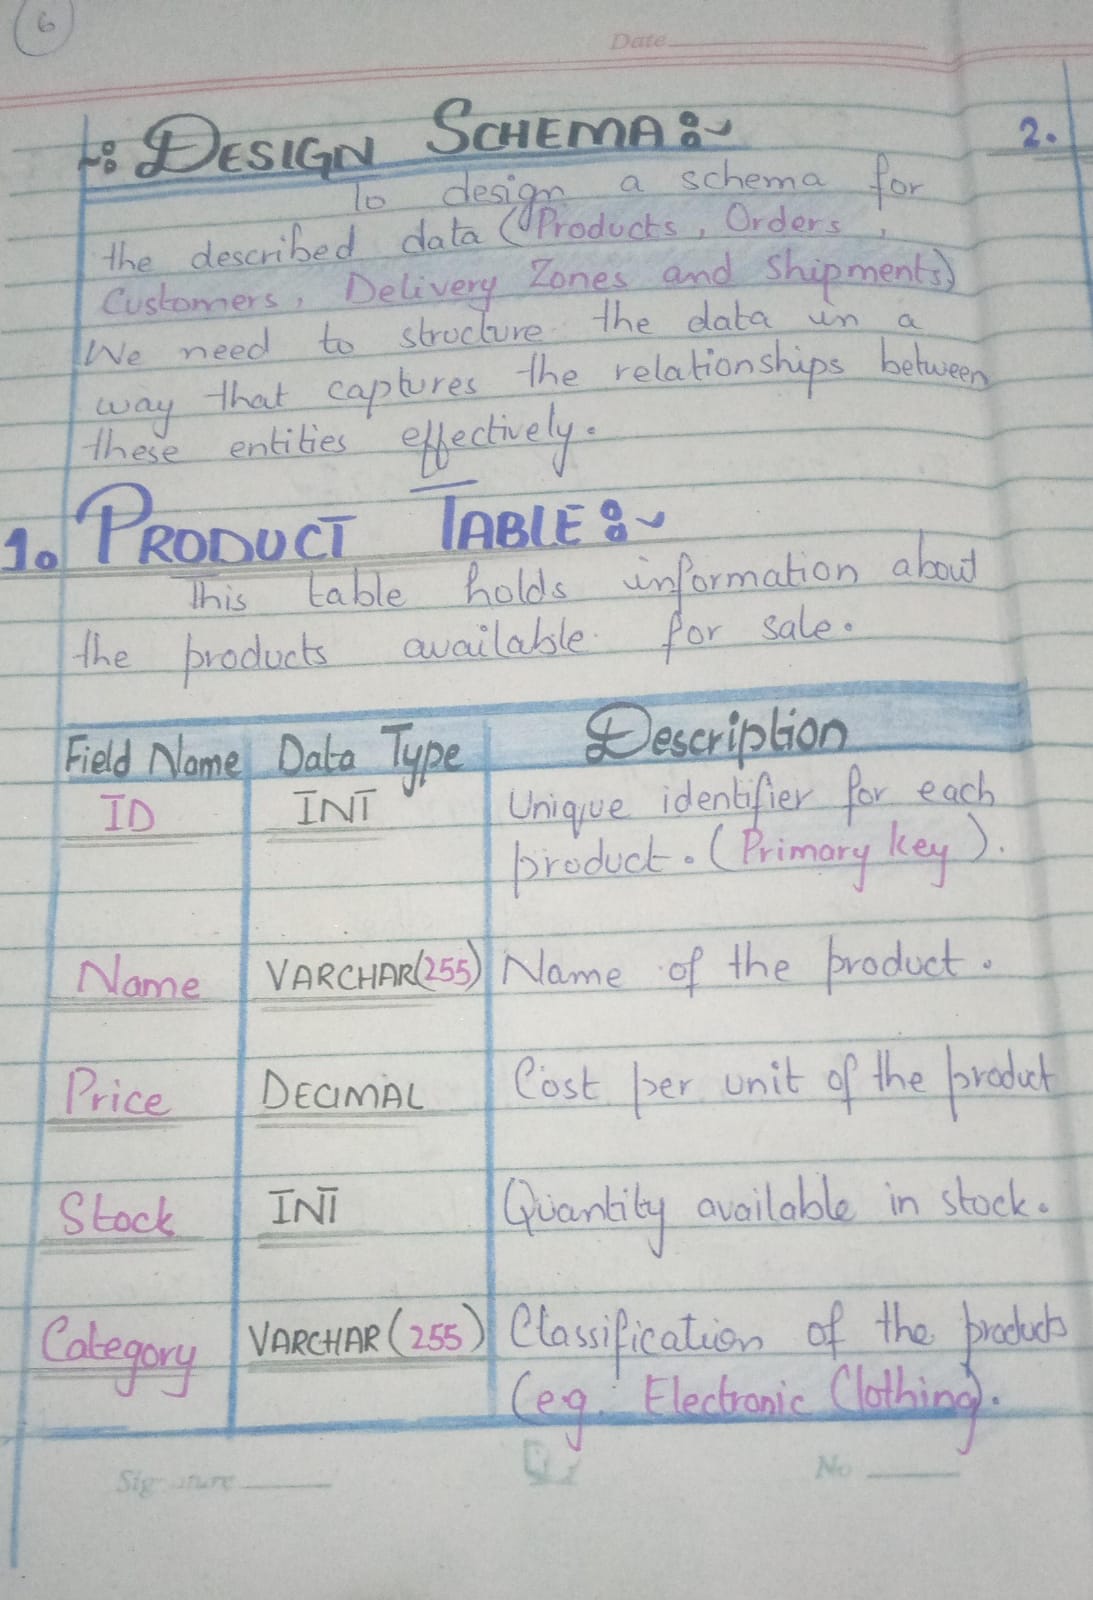 6
Date
DESIGN SCHEMA:~
2.
To design a schema for
the described data (Products, Orders,
Customers, Delivery Zones and Shipments)
We need to structure the data in a
way that captures the relationships between
these entities effectively.
1. PRODUCT TABLE:~
This table holds information about
the products available for sale.
Field Name Data Type Description
ID INT Unique identifier for each
product. (Primary key).
Name VARCHAR(255) Name of the product.
Price DECIMAL Cost per unit of the product
Stock INT Quantity available in stock.
Category VARCHAR (255) Classification of the products
(eg. Electronic Clothing).
Signature No